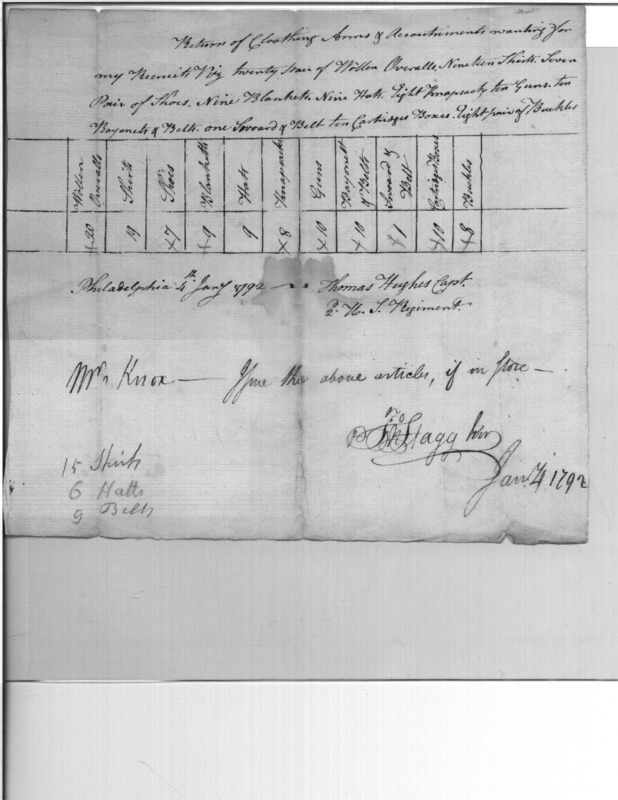 Return of Cloathing Arms & Accoutriments wanting for
my Recruits Viz twenty pair of Wollen Overalls Nineteen Shirts Seven
Pair of Shoes. Nine Blankets Nine Hats. Eight Knapsacks ten Guns. ten
Bayonets & Belts. one Sword & Belt ten Cartridges Boxes. Eight pair of Buckles
Wollen Overalls | Shirts | Shoes | Blanketts | Hats | Knapsacks | Guns | Bayonets & Belts | Sword & Belt | Cartridge Boxes | Buckles
x 20 | 19 | x 7 | x 9 | 9 | x 8 | x 10 | x 10 | x 1 | x 10 | x 8
Philadelphia 4th Jany 1792 — Thomas Hughes Capt.
2d U. S. Regiment.
Mr. Knox — Issue the above articles, if in Store —
Jno Stagg Jur
Jany 4 1792
15 Shirts
6 Hatts
9 Belts